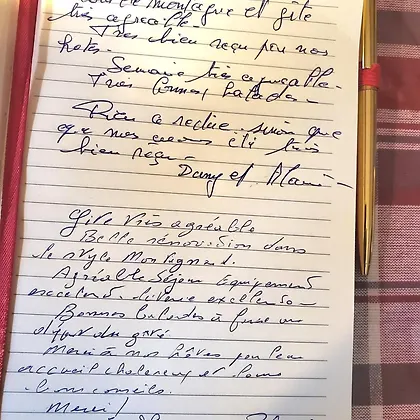 montagne et gîte
très agréable.
Très bien reçu par nos
hotes.
Semaine très agréable.
Très bonnes balades.
Rien à redire sinon que
que nous avons été très
bien reçu.
Dany et Alain
Gîte très agréable
Belle rénovation dans
le style Montagnard.
Agréable Séjour Equipement
excellent. Literie excellente.
Bonnes balades à faire au
départ du gîte
Merci à nos hôtes pour leur
accueil chaleureux et leurs
bons conseils.
Merci!